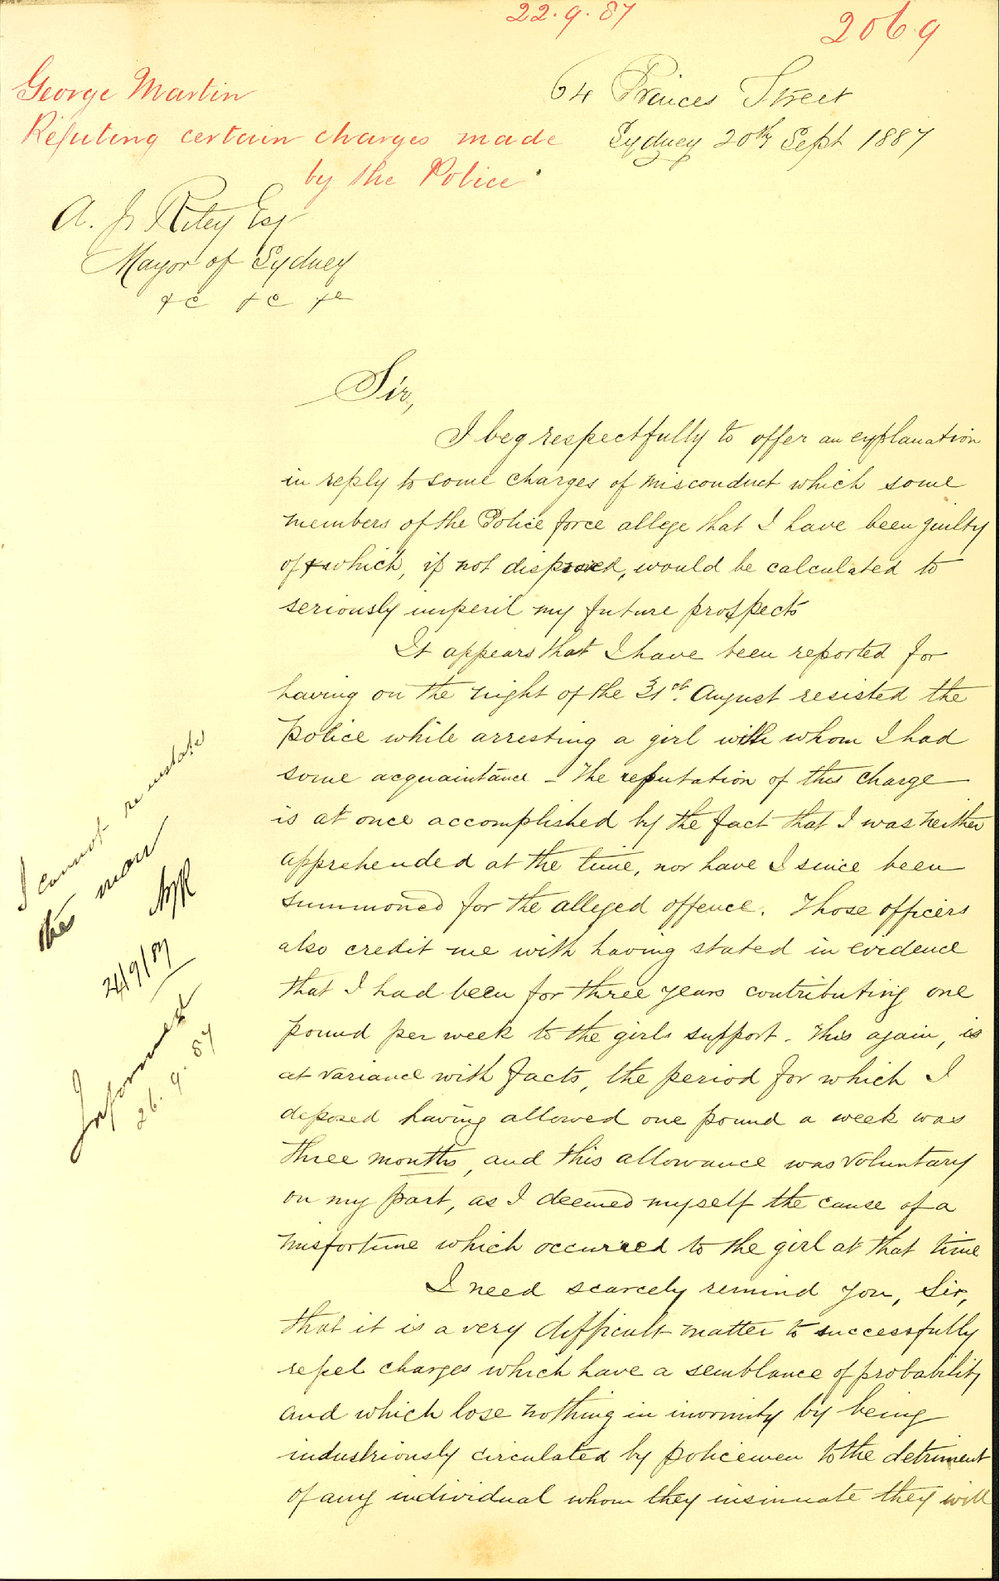 22.9.87
2069
George Martin
Refuting certain charges made
by the Police.
64 Princes Street
Sydney 20th Sept 1887
A. J. Riley Esq
Mayor of Sydney
&c &c &c
Sir,
I beg respectfully to offer an explanation
in reply to some charges of misconduct which some
members of the Police force allege that I have been guilty
of & which, if not disproved, would be calculated to
seriously imperil my future prospects
It appears that I have been reported for
having on the night of the 31st August resisted the
Police while arresting a girl with whom I had
some acquaintance - The refutation of this charge
is at once accomplished by the fact that I was neither
apprehended at the time, nor have I since been
summoned for the alleged offence. Those officers
also credit me with having stated in evidence
that I had been for three years contributing one
pound per week to the girls support. This again, is
at variance with facts, the period for which I
deposed having allowed one pound a week was
three months, and this allowance was voluntary
on my part, as I deemed myself the cause of a
misfortune which occurred to the girl at that time
I need scarcely remind you, Sir,
that it is a very difficult matter to successfully
repel charges which have a semblance of probability
and which lose nothing in inormity by being
industriously circulated by policemen to the detriment
of any individual whom they insinuate they will
I cannot reinstate
this man
AJR
24/9/87
Informed
26.9.87